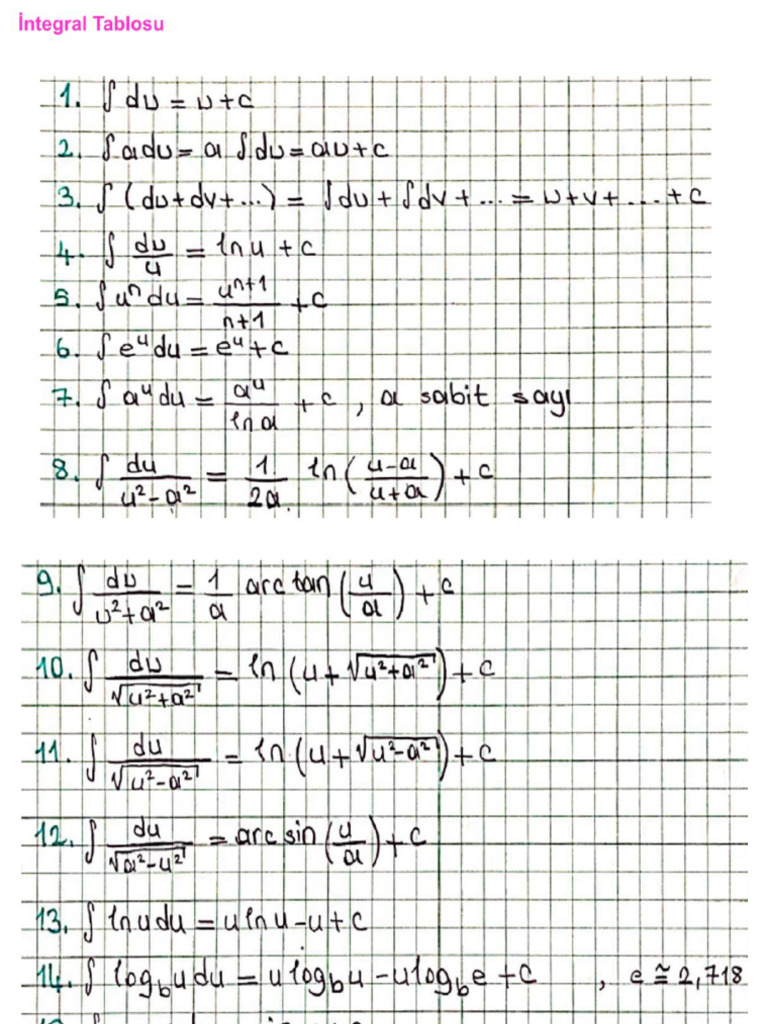 İntegral Tablosu
1. ∫ du = u + c
2. ∫ a du = a ∫ du = au + c
3. ∫ (du + dv + ...) = ∫ du + ∫ dv + ... = u + v + ... + c
4. ∫ du/u = ln u + c
5. ∫ uⁿ du = uⁿ⁺¹/n+1 + c
6. ∫ eᵘ du = eᵘ + c
7. ∫ aᵘ du = aᵘ/ln a + c , a sabit sayı
8. ∫ du/u²-a² = 1/2a ln (u-a/u+a) + c
9. ∫ du/u²+a² = 1/a arctan (u/a) + c
10. ∫ du/√u²+a² = ln (u + √u²+a²) + c
11. ∫ du/√u²-a² = ln (u + √u²-a²) + c
12. ∫ du/√a²-u² = arcsin (u/a) + c
13. ∫ ln u du = u ln u - u + c
14. ∫ log_b u du = u log_b u - u log_b e + c , e ≅ 2,718